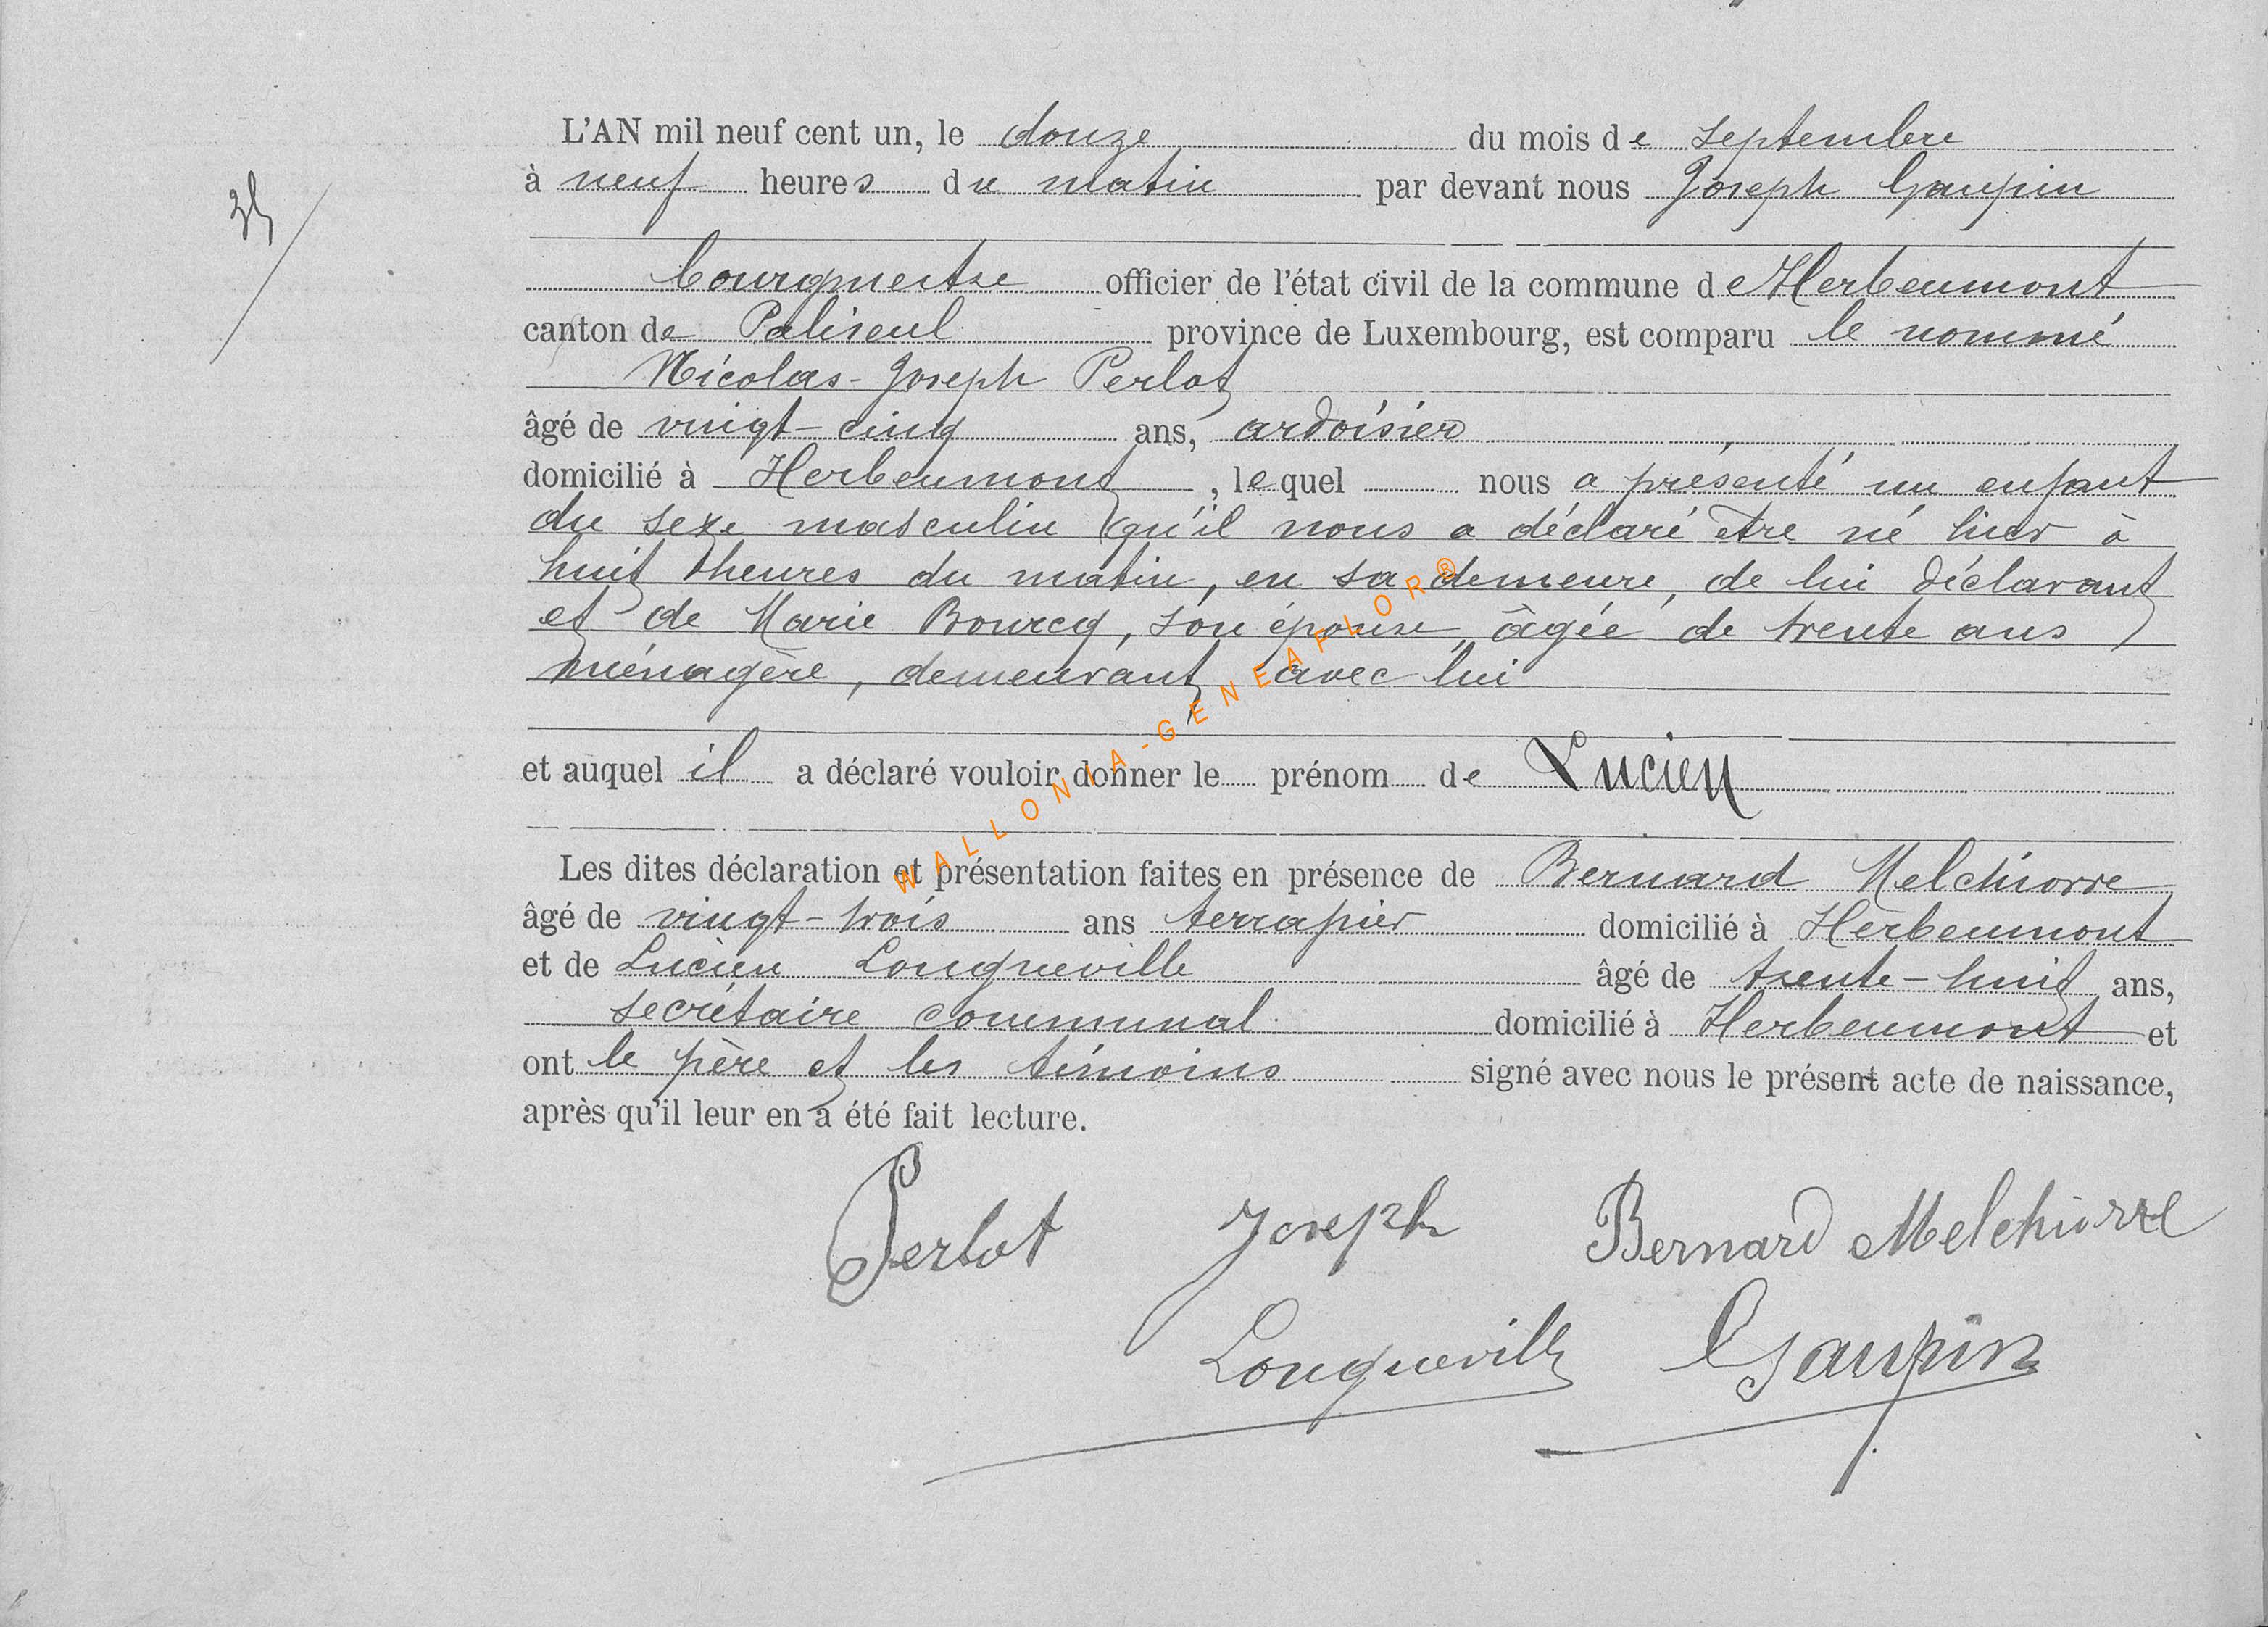 35
L'AN mil neuf cent un, le douze du mois de septembre
à neuf heures du matin par devant nous Joseph Gaupin
bourgmestre officier de l'état civil de la commune de Herbeumont
canton de Paliseul province de Luxembourg, est comparu le nommé
Nicolas-Joseph Perlot
âgé de vingt-cinq ans, ardoisier
domicilié à Herbeumont, lequel nous a présenté un enfant
du sexe masculin qu'il nous a déclaré être né hier à
huit heures du matin, en sa demeure, de lui déclarant
et de Marie Bourcq, son épouse, âgée de trente ans
ménagère, demeurant avec lui
et auquel il a déclaré vouloir donner le prénom de Lucien
Les dites déclaration et présentation faites en présence de Bernard Melchiorre
âgé de vingt-trois ans domicilié à Herbeumont
et de Lucien Longueville âgé de trente-huit ans,
secrétaire communal domicilié à Herbeumont et
ont le père et les témoins signé avec nous le présent acte de naissance,
après qu'il leur en a été fait lecture.
Perlot Joseph Bernard Melchiorre
Longueville Gaupin
WALLONIA-GENEAFLOR®